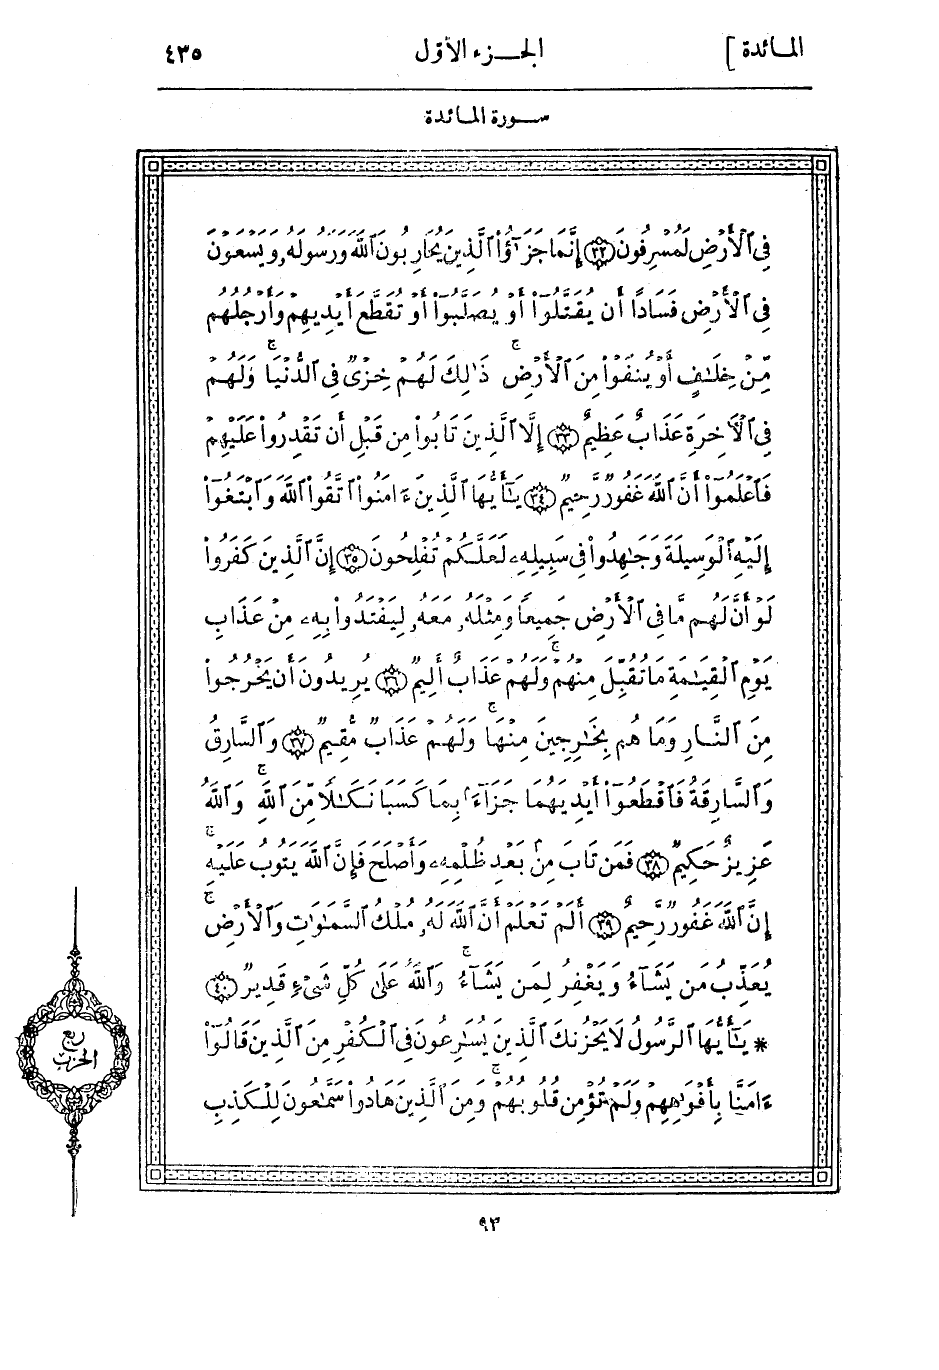 المائدة ] الجزء الأول ٤٣٥
سورة المائدة
فِى ٱلْأَرْضِ لَمُسْرِفُونَ ٣٢ إِنَّمَا جَزَٰٓؤُا۟ ٱلَّذِينَ يُحَارِبُونَ ٱللَّهَ وَرَسُولَهُۥ وَيَسْعَوْنَ
فِى ٱلْأَرْضِ فَسَادًا أَن يُقَتَّلُوٓا۟ أَوْ يُصَلَّبُوٓا۟ أَوْ تُقَطَّعَ أَيْدِيهِمْ وَأَرْجُلُهُم
مِّنْ خِلَٰفٍ أَوْ يُنفَوْا۟ مِنَ ٱلْأَرْضِ ۚ ذَٰلِكَ لَهُمْ خِزْىٌ فِى ٱلدُّنْيَا ۖ وَلَهُمْ
فِى ٱلْأَخِرَةِ عَذَابٌ عَظِيمٌ ٣٣ إِلَّا ٱلَّذِينَ تَابُوا۟ مِن قَبْلِ أَن تَقْدِرُوا۟ عَلَيْهِمْ
فَٱعْلَمُوٓا۟ أَنَّ ٱللَّهَ غَفُورٌ رَّحِيمٌ ٣٤ يَٰٓأَيُّهَا ٱلَّذِينَ ءَامَنُوا۟ ٱتَّقُوا۟ ٱللَّهَ وَٱبْتَغُوٓا۟
إِلَيْهِ ٱلْوَسِيلَةَ وَجَٰهِدُوا۟ فِى سَبِيلِهِۦ لَعَلَّكُمْ تُفْلِحُونَ ٣٥ إِنَّ ٱلَّذِينَ كَفَرُوا۟
لَوْ أَنَّ لَهُم مَّا فِى ٱلْأَرْضِ جَمِيعًا وَمِثْلَهُۥ مَعَهُۥ لِيَفْتَدُوا۟ بِهِۦ مِنْ عَذَابِ
يَوْمِ ٱلْقِيَٰمَةِ مَا تُقُبِّلَ مِنْهُمْ ۖ وَلَهُمْ عَذَابٌ أَلِيمٌ ٣٦ يُرِيدُونَ أَن يَخْرُجُوا۟
مِنَ ٱلنَّارِ وَمَا هُم بِخَٰرِجِينَ مِنْهَا ۖ وَلَهُمْ عَذَابٌ مُّقِيمٌ ٣٧ وَٱلسَّارِقُ
وَٱلسَّارِقَةُ فَٱقْطَعُوٓا۟ أَيْدِيَهُمَا جَزَآءًۢ بِمَا كَسَبَا نَكَٰلًا مِّنَ ٱللَّهِ ۗ وَٱللَّهُ
عَزِيزٌ حَكِيمٌ ٣٨ فَمَن تَابَ مِنۢ بَعْدِ ظُلْمِهِۦ وَأَصْلَحَ فَإِنَّ ٱللَّهَ يَتُوبُ عَلَيْهِ ۗ
إِنَّ ٱللَّهَ غَفُورٌ رَّحِيمٌ ٣٩ أَلَمْ تَعْلَمْ أَنَّ ٱللَّهَ لَهُۥ مُلْكُ ٱلسَّمَٰوَٰتِ وَٱلْأَرْضِ ۚ
يُعَذِّبُ مَن يَشَآءُ وَيَغْفِرُ لِمَن يَشَآءُ ۗ وَٱللَّهُ عَلَىٰ كُلِّ شَىْءٍ قَدِيرٌ ٤٠
* يَٰٓأَيُّهَا ٱلرَّسُولُ لَا يَحْزُنكَ ٱلَّذِينَ يُسَٰرِعُونَ فِى ٱلْكُفْرِ مِنَ ٱلَّذِينَ قَالُوٓا۟
ءَامَنَّا بِأَفْوَٰهِهِمْ وَلَمْ تُؤْمِن قُلُوبُهُمْ ۛ وَمِنَ ٱلَّذِينَ هَادُوا۟ سَمَّٰعُونَ لِلْكَذِبِ
ربع
الحزب
٩٣